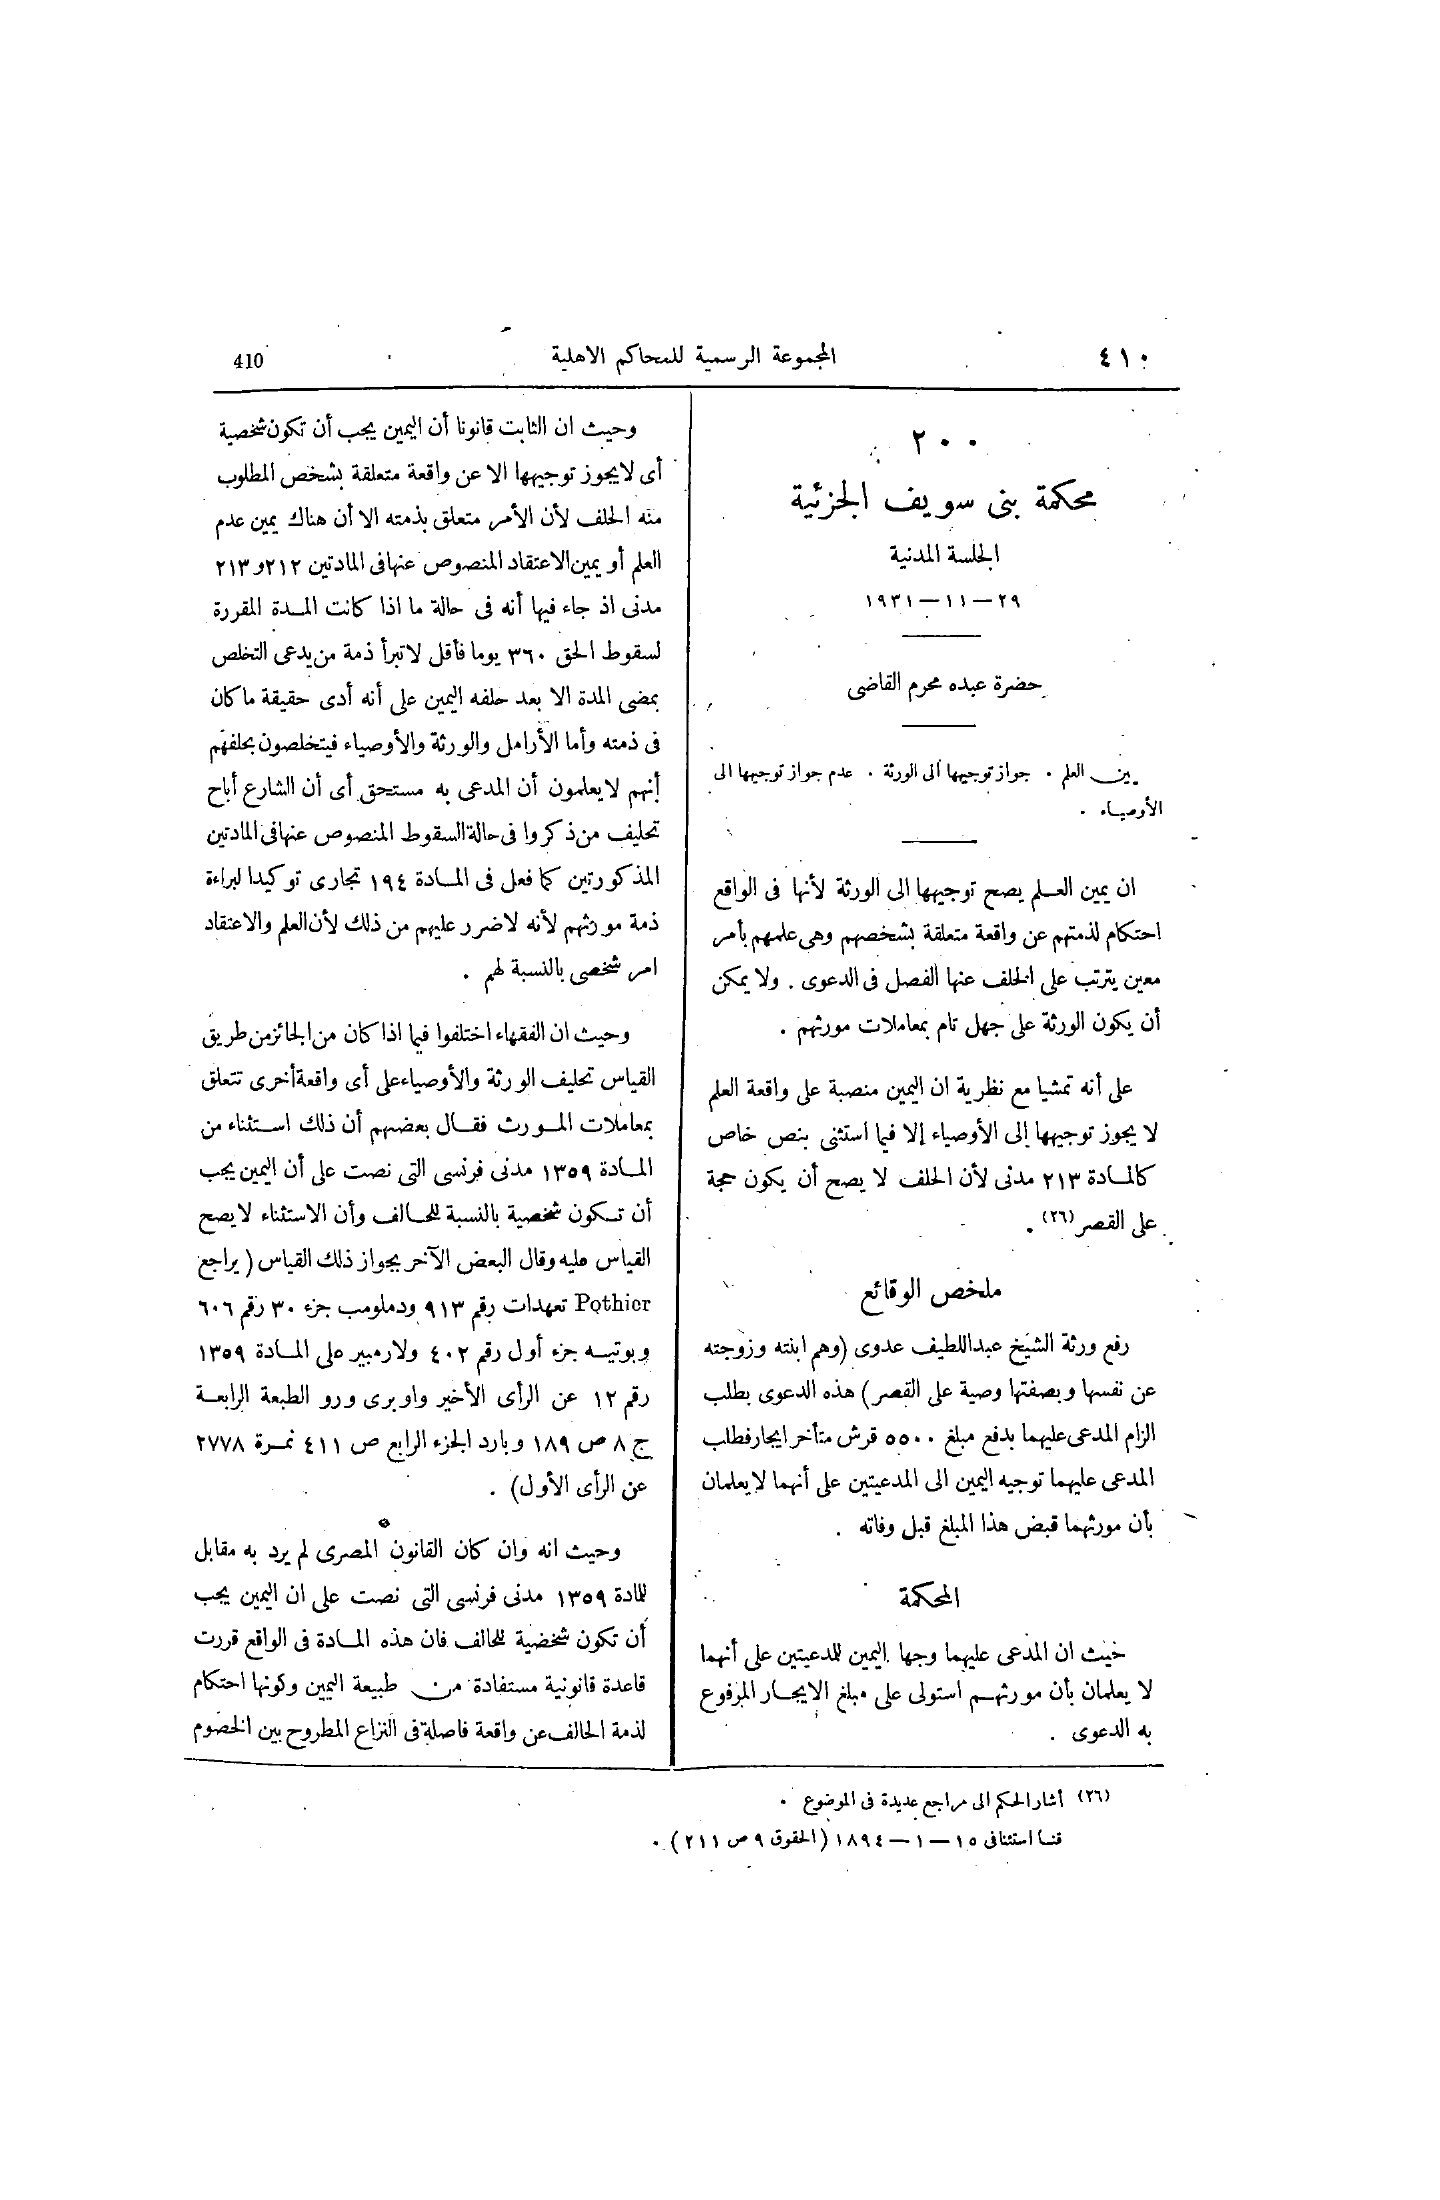 ٤١٠
المجموعة الرسمية للمحاكم الاهلية
410
٢٠٠
محكمة بنى سويف الجزئية
الجلسة المدنية
٢٩ — ١١ — ١٩٣١
حضرة عبده محرم القاضى
يمين العلم . جواز توجيهها الى الورثة . عدم جواز توجيهها الى
الأوصياء .
ان يمين العلم يصح توجيهها الى الورثة لأنها فى الواقع
احتكام لذمتهم عن واقعة متعلقة بشخصهم وهى علمهم بأمر
معين يترتب على الخلف عنها الفصل فى الدعوى . ولا يمكن
أن يكون الورثة على جهل تام بمعاملات مورثهم .
على أنه تمشيا مع نظرية ان اليمين منصبة على واقعة العلم
لا يجوز توجيهها إلى الأوصياء إلا فيما استثنى بنص خاص
كالمادة ٢١٣ مدنى لأن الحلف لا يصح أن يكون حجة
على القصر (٢٦) .
ملخص الوقائع
رفع ورثة الشيخ عبد اللطيف عدوى (وهم ابنته وزوجته
عن نفسها وبصفتها وصية على القصر) هذه الدعوى بطلب
الزام المدعى عليهما بدفع مبلغ ٥٥٠٠ قرش متأخر ايجار فطلب
المدعى عليهما توجيه اليمين الى المدعيتين على أنهما لا يعلمان
بأن مورثهما قبض هذا المبلغ قبل وفاته .
المحكمة
حيث ان المدعى عليهما وجها اليمين للمدعيتين على أنهما
لا يعلمان بأن مورثهم استولى على مبلغ الايجار المرفوع
به الدعوى .
وحيث ان الثابت قانونا أن اليمين يجب أن تكون شخصية
أى لا يجوز توجيهها الا عن واقعة متعلقة بشخص المطلوب
منه الحلف لأن الأمر متعلق بذمته الا أن هناك يمين عدم
العلم أو يمين الاعتقاد المنصوص عنها فى المادتين ٢١٢ و ٢١٣
مدنى اذ جاء فيها أنه فى حالة ما اذا كانت المدة المقررة
لسقوط الحق ٣٦٠ يوما فأقل لا تبرأ ذمة من يدعى التخلص
بمضى المدة الا بعد حلفه اليمين على أنه أدى حقيقة ما كان
فى ذمته وأما الأرامل والورثة والأوصياء فيتخلصون بحلفهم
إنهم لا يعلمون أن المدعى به مستحق أى أن الشارع أباح
تحليف من ذكروا فى حالة السقوط المنصوص عنها فى المادتين
المذكورتين كما فعل فى المادة ١٩٤ تجارى توكيدا لبراءة
ذمة مورثهم لأنه لا ضرر عليهم من ذلك لأن العلم والاعتقاد
امر شخصى بالنسبة لهم .
وحيث ان الفقهاء اختلفوا فيما اذا كان من الجائز من طريق
القياس تحليف الورثة والأوصياء على أى واقعة أخرى تتعلق
بمعاملات المورث فقال بعضهم أن ذلك استثناء من
المادة ١٣٥٩ مدنى فرنسى التى نصت على أن اليمين يجب
أن تكون شخصية بالنسبة للحالف وأن الاستثناء لا يصح
القياس عليه وقال البعض الآخر بجواز ذلك القياس (يراجع
Pothier تعهدات رقم ٩١٣ ودملومب جزء ٣٠ رقم ٦٠٦
وبوتيه جزء أول رقم ٤٠٢ ولارمبير على المادة ١٣٥٩
رقم ١٢ عن الرأى الأخير واوبرى ورو الطبعة الرابعة
ج ٨ ص ١٨٩ وبارد الجزء الرابع ص ٤١١ نمرة ٢٧٧٨
عن الرأى الأول) .
وحيث انه وان كان القانون المصرى لم يرد به مقابل
للمادة ١٣٥٩ مدنى فرنسى التى نصت على ان اليمين يجب
أن تكون شخصية للحالف فان هذه المادة فى الواقع قررت
قاعدة قانونية مستفادة من طبيعة اليمين وكونها احتكام
لذمة الحالف عن واقعة فاصلة فى النزاع المطروح بين الخصوم
(٢٦) أشار الحكم الى مراجع عديدة فى الموضوع .
قنا استئنافى ١٥ — ١ — ١٨٩٤ (الحقوق ٩ ص ٢١١) .